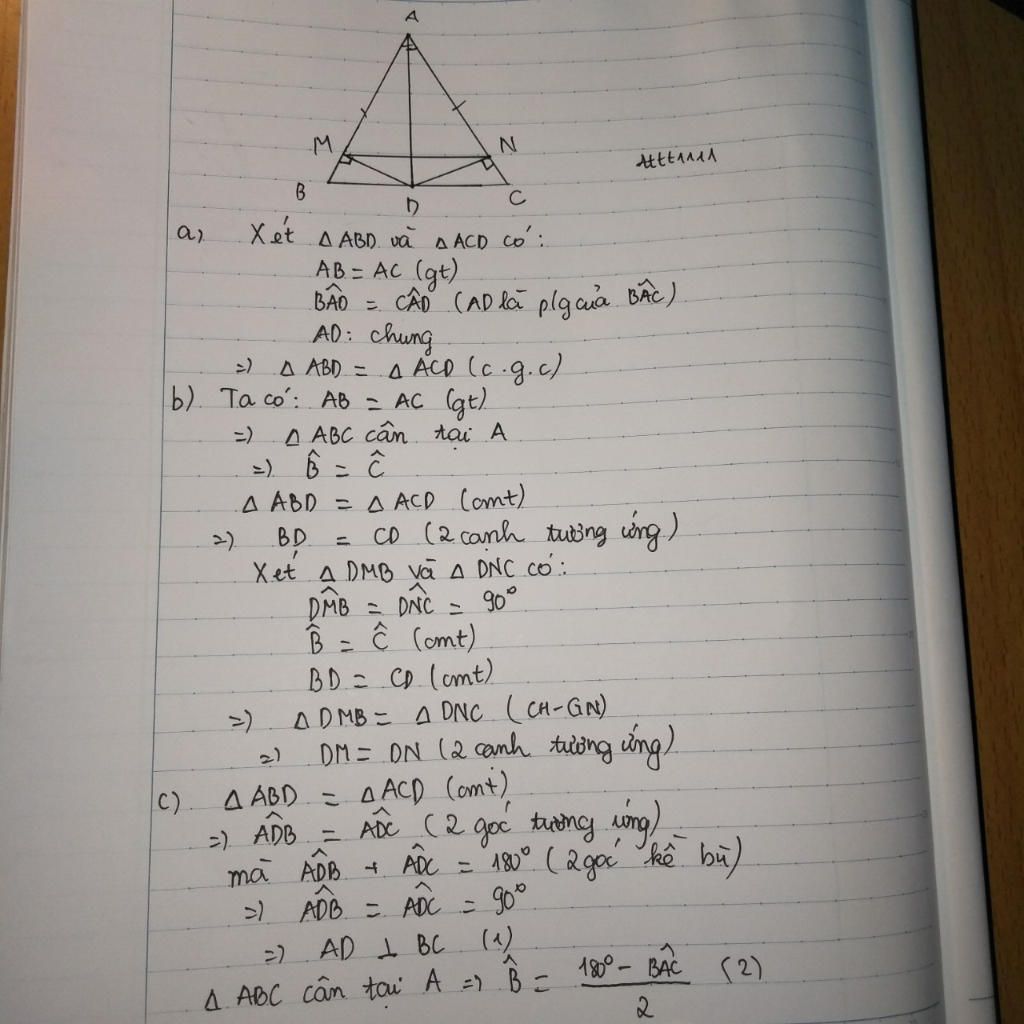 A
M
N
B
D
C
tttt1111
a, Xét Δ ABD và Δ ACD có:
AB = AC (gt)
BÂD = CÂD (AD là p/g của BÂC)
AD: chung
=) Δ ABD = Δ ACD (c.g.c)
b) Ta có: AB = AC (gt)
=) Δ ABC cân tại A
=) B̂ = Ĉ
Δ ABD = Δ ACD (cmt)
=) BD = CD (2 cạnh tương ứng)
Xét Δ DMB và Δ DNC có:
DM̂B = DN̂C = 90°
B̂ = Ĉ (cmt)
BD = CD (cmt)
=) Δ DMB = Δ DNC (CH-GN)
=) DM = DN (2 cạnh tương ứng)
c) Δ ABD = Δ ACD (cmt)
=) AD̂B = AD̂C (2 góc tương ứng)
mà AD̂B + AD̂C = 180° (2 góc kề bù)
=) AD̂B = AD̂C = 90°
=) AD ⊥ BC (1)
Δ ABC cân tại A =) B̂ = (180° - BÂC)/2 (2)